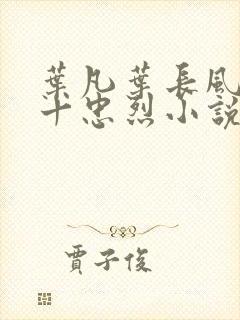 葉凡葉長風
十忠烈小說
賈子俊